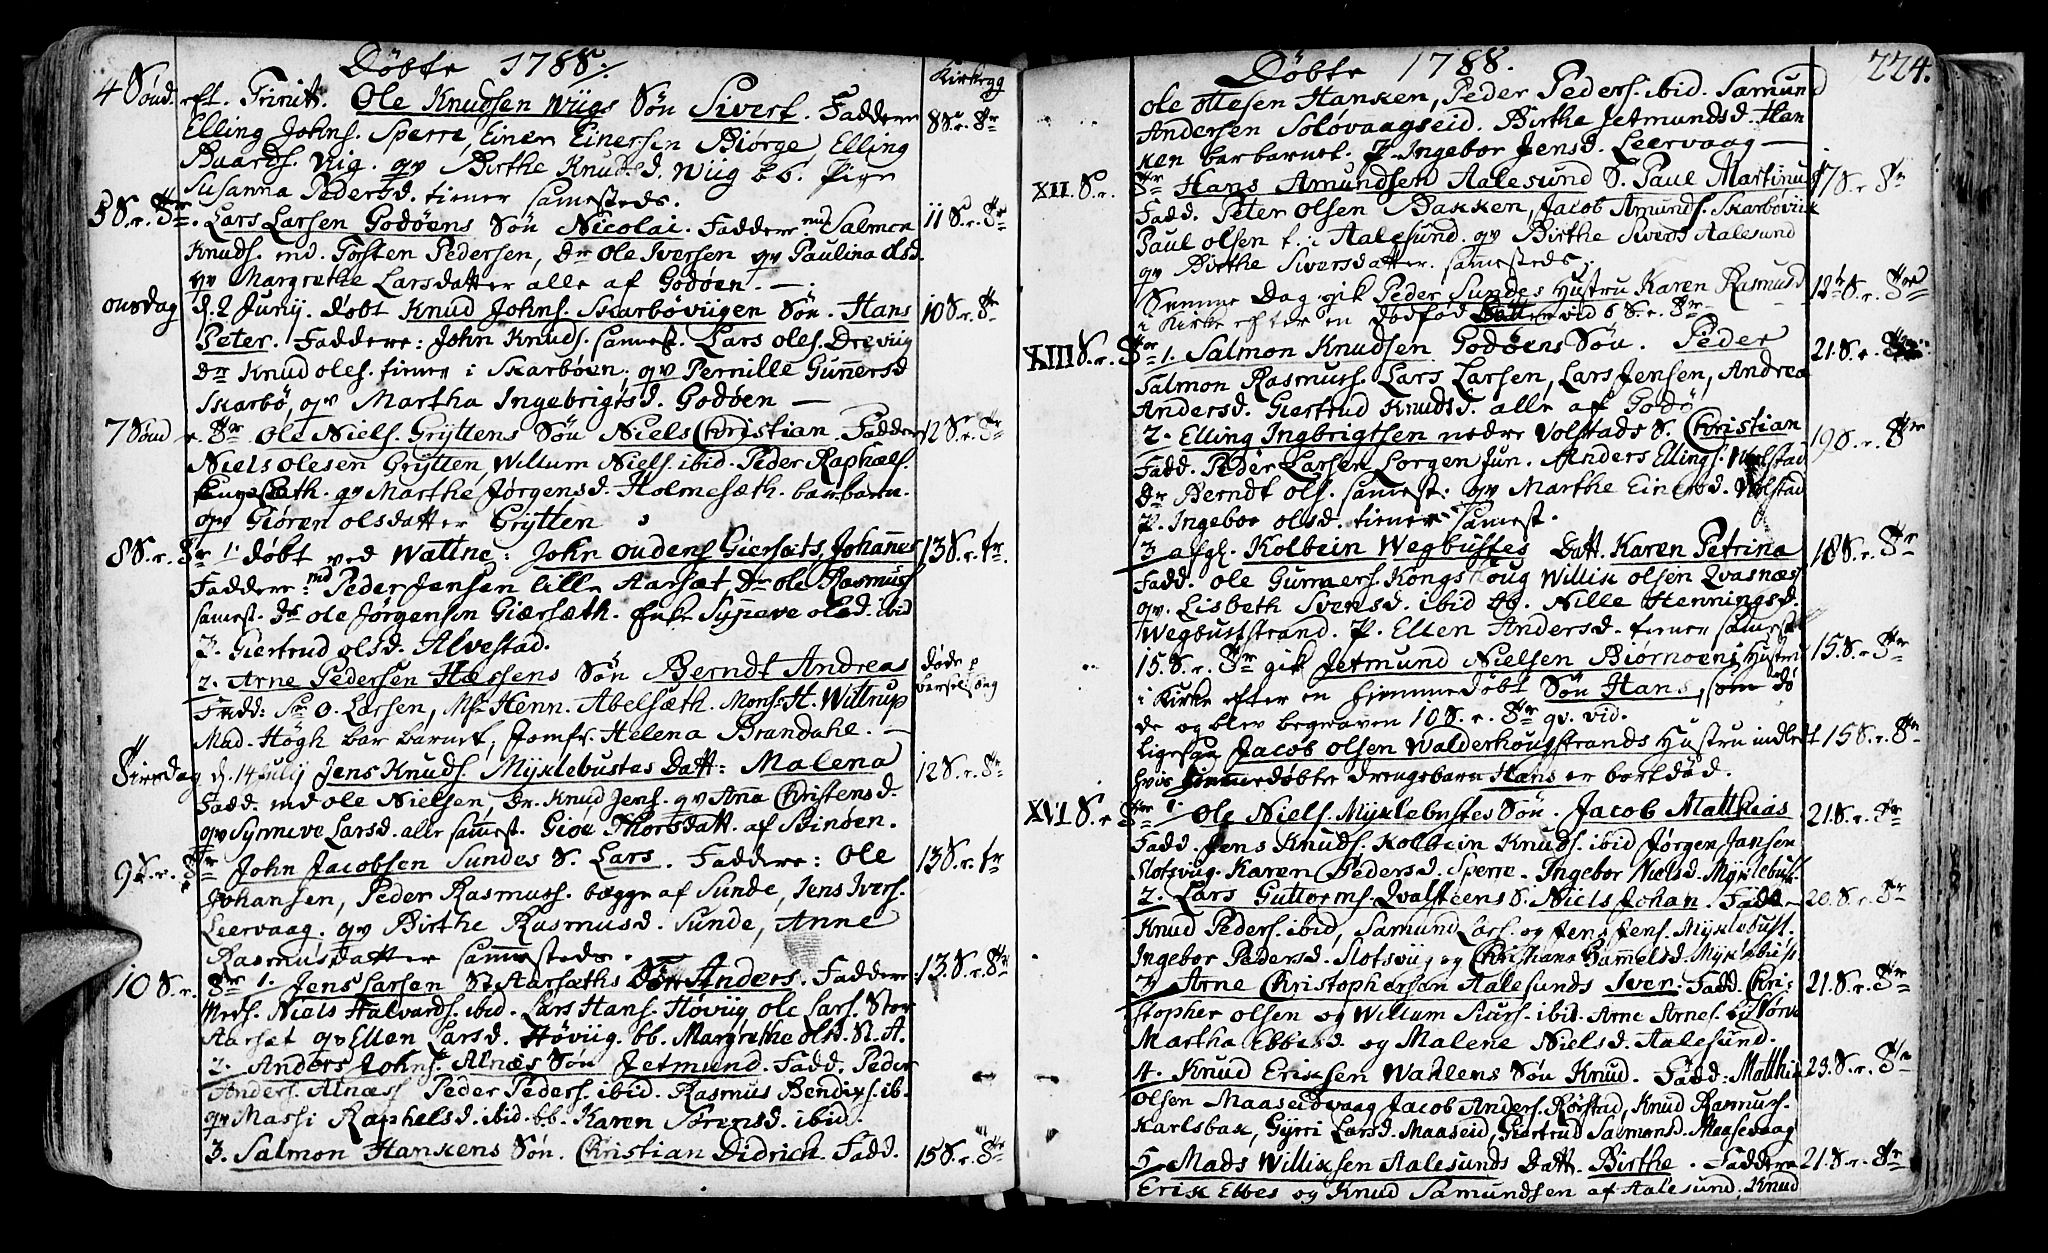 Döbte 1788.
Kirkegg
4 Sönd. eft. Trinit. Ole Knudsen Wügs Sön Sivert. Faddere 8 S. r. Tr
Elling Johns. Sperre, Einer Einersen Biörge, Elling
Baards. Vüg. qv Birthe Knudsd. Wüg bb. Pige
Susanna Pedersd. tiener samesteds.
S. r. Tr. Lars Larsen Godöens Sön Nicolai. Faddere md Salmon 11 S. r. Tr
Knuds. md Torsten Pedersen, Dr Ole Iversen qv Paulina Olsd.
qv Margrethe Larsdatter alle af Godöen.
onsdag d. 2 Junij. döbt Knud Johns. Skarböviigen Sön. Hans 10 S. r. Tr
Peter. Faddere: John Knuds. samest. Lars Oles. Drevüg
Dr Knud Oles. tiener i Skarböen. qv Pernille Guñersd
Skarbö, qv Martha Ingebrigtsd. Godöen
7 Sönd r. Tr Ole Niels. Gryttens Sön Niels Christian. Faddere 12 S. r. Tr
Niels Olesen Grytten, Willum Niels. ibid. Peder Raphæls.
qv Marthe Jörgensd. Holmesæth. bar barn.
qv Giören Olsdatter Grytten
8 S. r. Tr 1. döbt ved Wattne: John Oudens Giersæts, Johañes 13 S. r. tr.
Faddere: md Peder Jensen lille Aarsæt, Dr Ole Rasmuss
samest. Dr Ole Jörgensen Giærsæth. Enke Synnave Olsd. ibid
P. Giertrud Olsd. Alvestad.
2. Arne Pedersen Hæssens Sön Berndt Andreas döde
barselseng
Fadd: Sr O. Larsen, Mr Henn. Abelsæth. Mons. H. Wittrup
Mad. Högh bar barnet, Jomfr. Helena Brandahl.
d. 14 Julij Jens Knuds. Myklebustes Datt: Malena 12 S. r. Tr
Fadd. md Ole Nielsen, Dr. Knud Jens. qv Aña Christensd.
qv Synneve Larsd. alle samest. Gioe Thorsdatt. af Stinöen.
9 S. r. Tr John Jacobsen Sundes S. Lars. Faddere: Ole 13 S. r. tr
Johansen, Peder Rasmuss. begge af Sunde, Jens Ivers.
Leervaag. qv Birthe Rasmusd. Sunde, Anne
Rasmusdatter samesteds.
10 S. r. Tr 1. Jens Larsen St Aarsæths Sön Anders. Faddere 13. S. r. Tr
Mrds. Niels Halvards. ibid. Lars Hans. Hövüg Ole Lars. Stor
Aarsæt qv Ellen Larsd. Hövüg. bb. Margrethe Olsd. St. A.
2. Anders Johns. Alnæs Sön Jetmund. Fadd. Peder
Anders. Alnæss Peder Peders. ibid. Rasmus Bendixs. ib.
qv Massi Raphelsd. ibid. bb. Karen Sörensd. ibid.
3. Salmon Hankens Sön. Christian Didrich. Fadd. 15 S. r. Tr
Döbte 1788. 224.
Ole Ottesen Hanken, Peder Peders. ibid. Samund
Andersen Solövaagseid. Birthe Jetmundsd. Han
ken bar barnet. P. Ingebor Jensd. Leervaag
XII. S. r. Tr Hans Amundsen Aalesund S. Paul Martinus 17 S. r. Tr
Fadd. Peter Olsen Bakken, Jacob Amunds. Skarböviik
Paul Olsen t. i Aalesund. qv Birthe Sivers Aalesund
qv Birthe Siversdatter. samesteds.
Samme Dag gik Peder Sundes Hustru Karen Rasmusd 12 S. r. Tr
i Kirke efter en dödfød Datter vid 6 S. r. Tr
XIII S. r. Tr 1. Salmon Knudsen Godöens Sön. Peder 21. S. r. Tr
Salmon Rasmuss. Lars Larsen, Lars Jensen, Andrea
Andersd. Giertrud Knudsd. alle af Godö
2. Elling Ingbrigtsen nedre Volstads S. Christian 19 S. r. Tr
Fadd. Peder Larsen Lorgen Jun. Anders Ellings. Wolstad
Dr Berndt Ols. samest: qv Marthe Einersd. Volstad
P. Ingebor Olsd. tiener samest.
3 afgl. Kolbein Wegbustes Datt. Karen Petrina 18 S. r. Tr
Fadd. Ole Guñers. Kongshoug Willix Olsen Qvasnæs
qv. Lisbeth Svensd. ibid bb. Nille Henningsd.
Wegbuststrand. P. Ellen Andersd. tiener samest
15. S. r. Tr gik Jetmund Nielsen Biörnoens Hustru 15. S. r. Tr
i Kirke efter en Hjemmedöbt Sön Hans, som dö
de og blev begraven 10 S. r. Tr qv. vid.
Ligesaa Jacob Olsen Walderhougstrands Hustru indledt 15 S. r. Tr
hvis hiemmedöbte drengebarn Hans er bortdöd.
XVI. S. r. Tr 1. Ole Niels. Myklebustes Sön. Jacob Matthias 21. S. r. Tr
Fadd. Jens Knuds. Kolbein Knuds. ibid Jörgen Jansen
Slotsvüg. Karen Pedersd. Sperre. Ingebor Nielsd. Myklebust
2. Lars Guttorms. Qvalsteens S. Niels Johan. Fadd. 20. S. r. Tr
Knud Peders. ibid, Samund Lars. og Jens Jens. Myklebust.
Ingebor Pedersd. Slotsvüg og Christiane Gammelsd. Myklebust
3. Arne Christophersøn Aalesunds Iver. Fadd. Chri- 21. S. r. Tr
stopher Olsen og Willum Siurs. ibid. Arne Arnes.
Martha Ebbesd. og Malene Nielsd. Aalesund.
4. Knud Eriksen Wahlens Sön Knud. Fadd: Matthis 23. S. r. Tr
Olsen Maaseidvaag Jacob Anders. Rörstad, Knud Rasmuss.
Karlsbak, Gyrri Larsd. Maaseid, Giertrud Salmonsd. Maasevaag
5. Mads Willixsen Aalesunds Datt. Birthe. Faddere 21. S. r. Tr
Erik Ebbes og Knud Samundsen af Aalesund, Knud